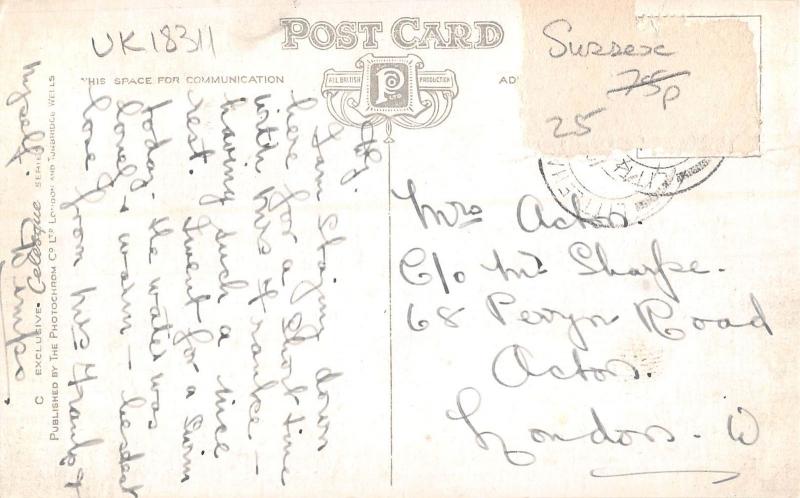 UK18311
POST CARD
ALL BRITISH
PRODUCTION
P
THIS SPACE FOR COMMUNICATION
AD
Sussex
75p
25
I am staying down
here for a short time
with Mrs Franke –
having such a nice
rest. I went for a swim
today. the water was
lovely & warm – best
love from Mrs Franke &
myself
C EXCLUSIVE Celesque SERIES
PUBLISHED BY THE PHOTOCHROM CO LTD LONDON AND TUNBRIDGE WELLS
Mrs Acton.
C/o Mr Sharpe.
68 Perryn Road
Acton.
London. W